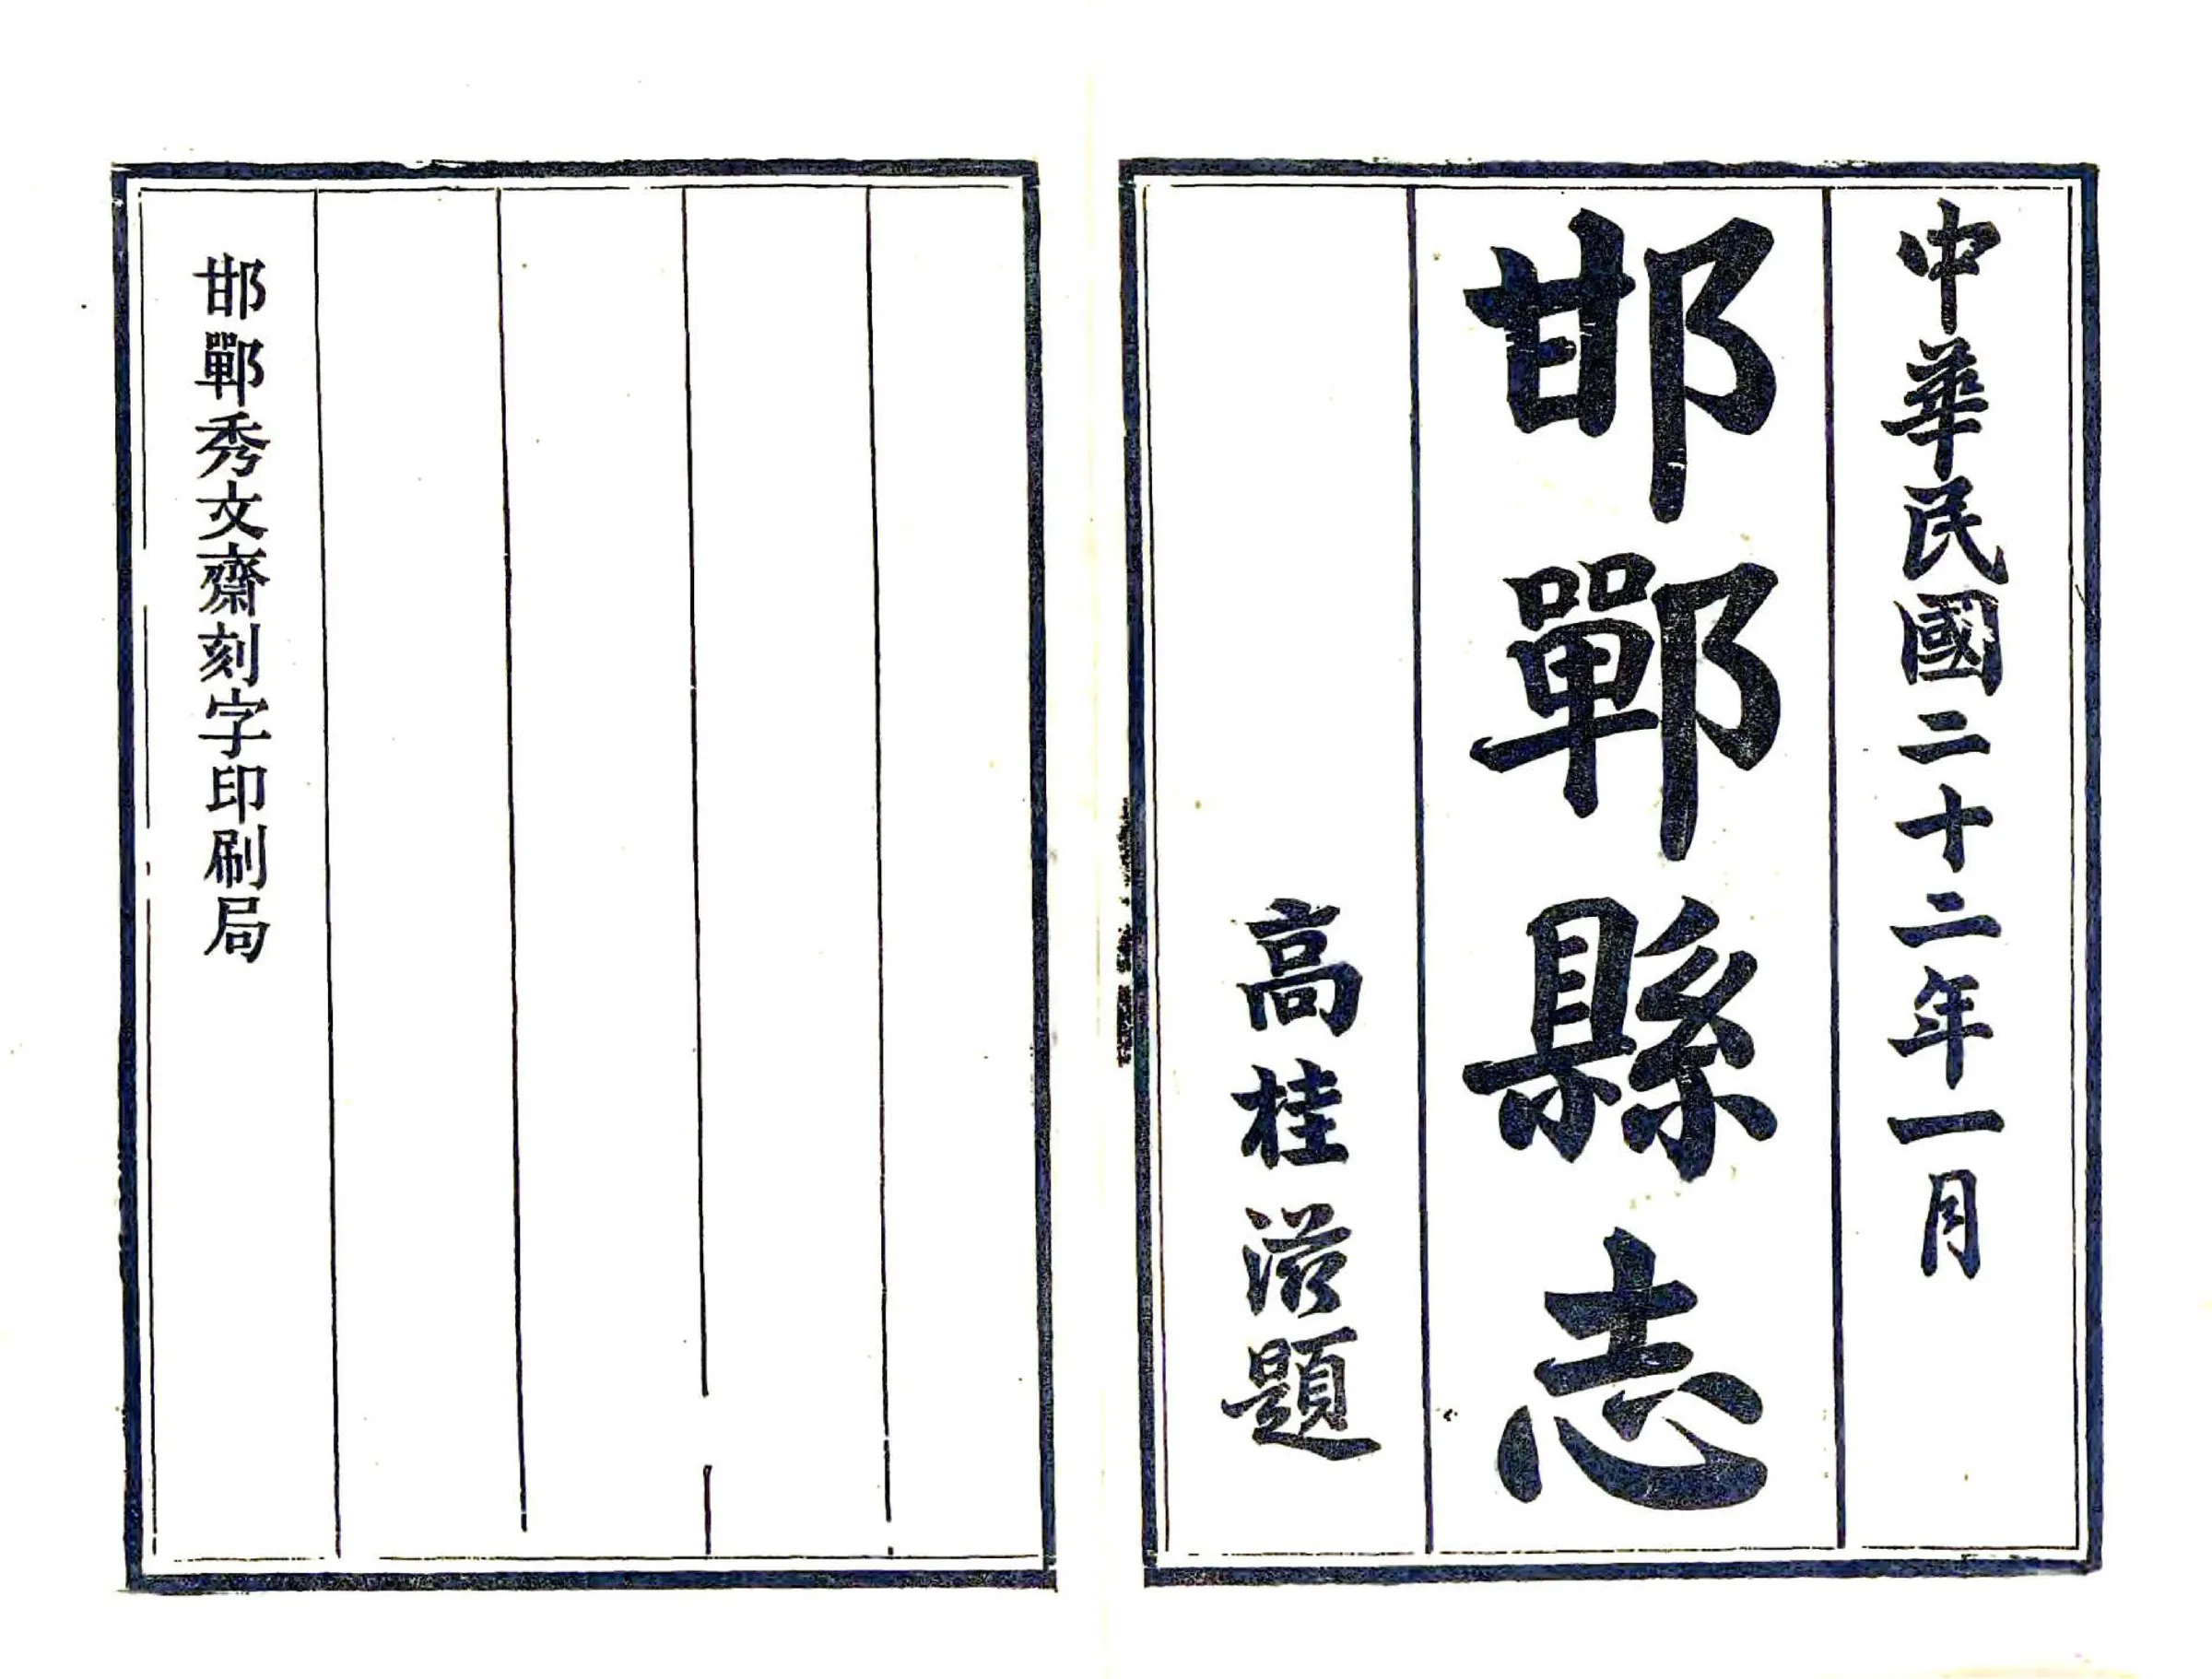 中華民國二十二年一月
邯鄲縣志
高桂滋題
邯鄲秀文齋刻字印刷局